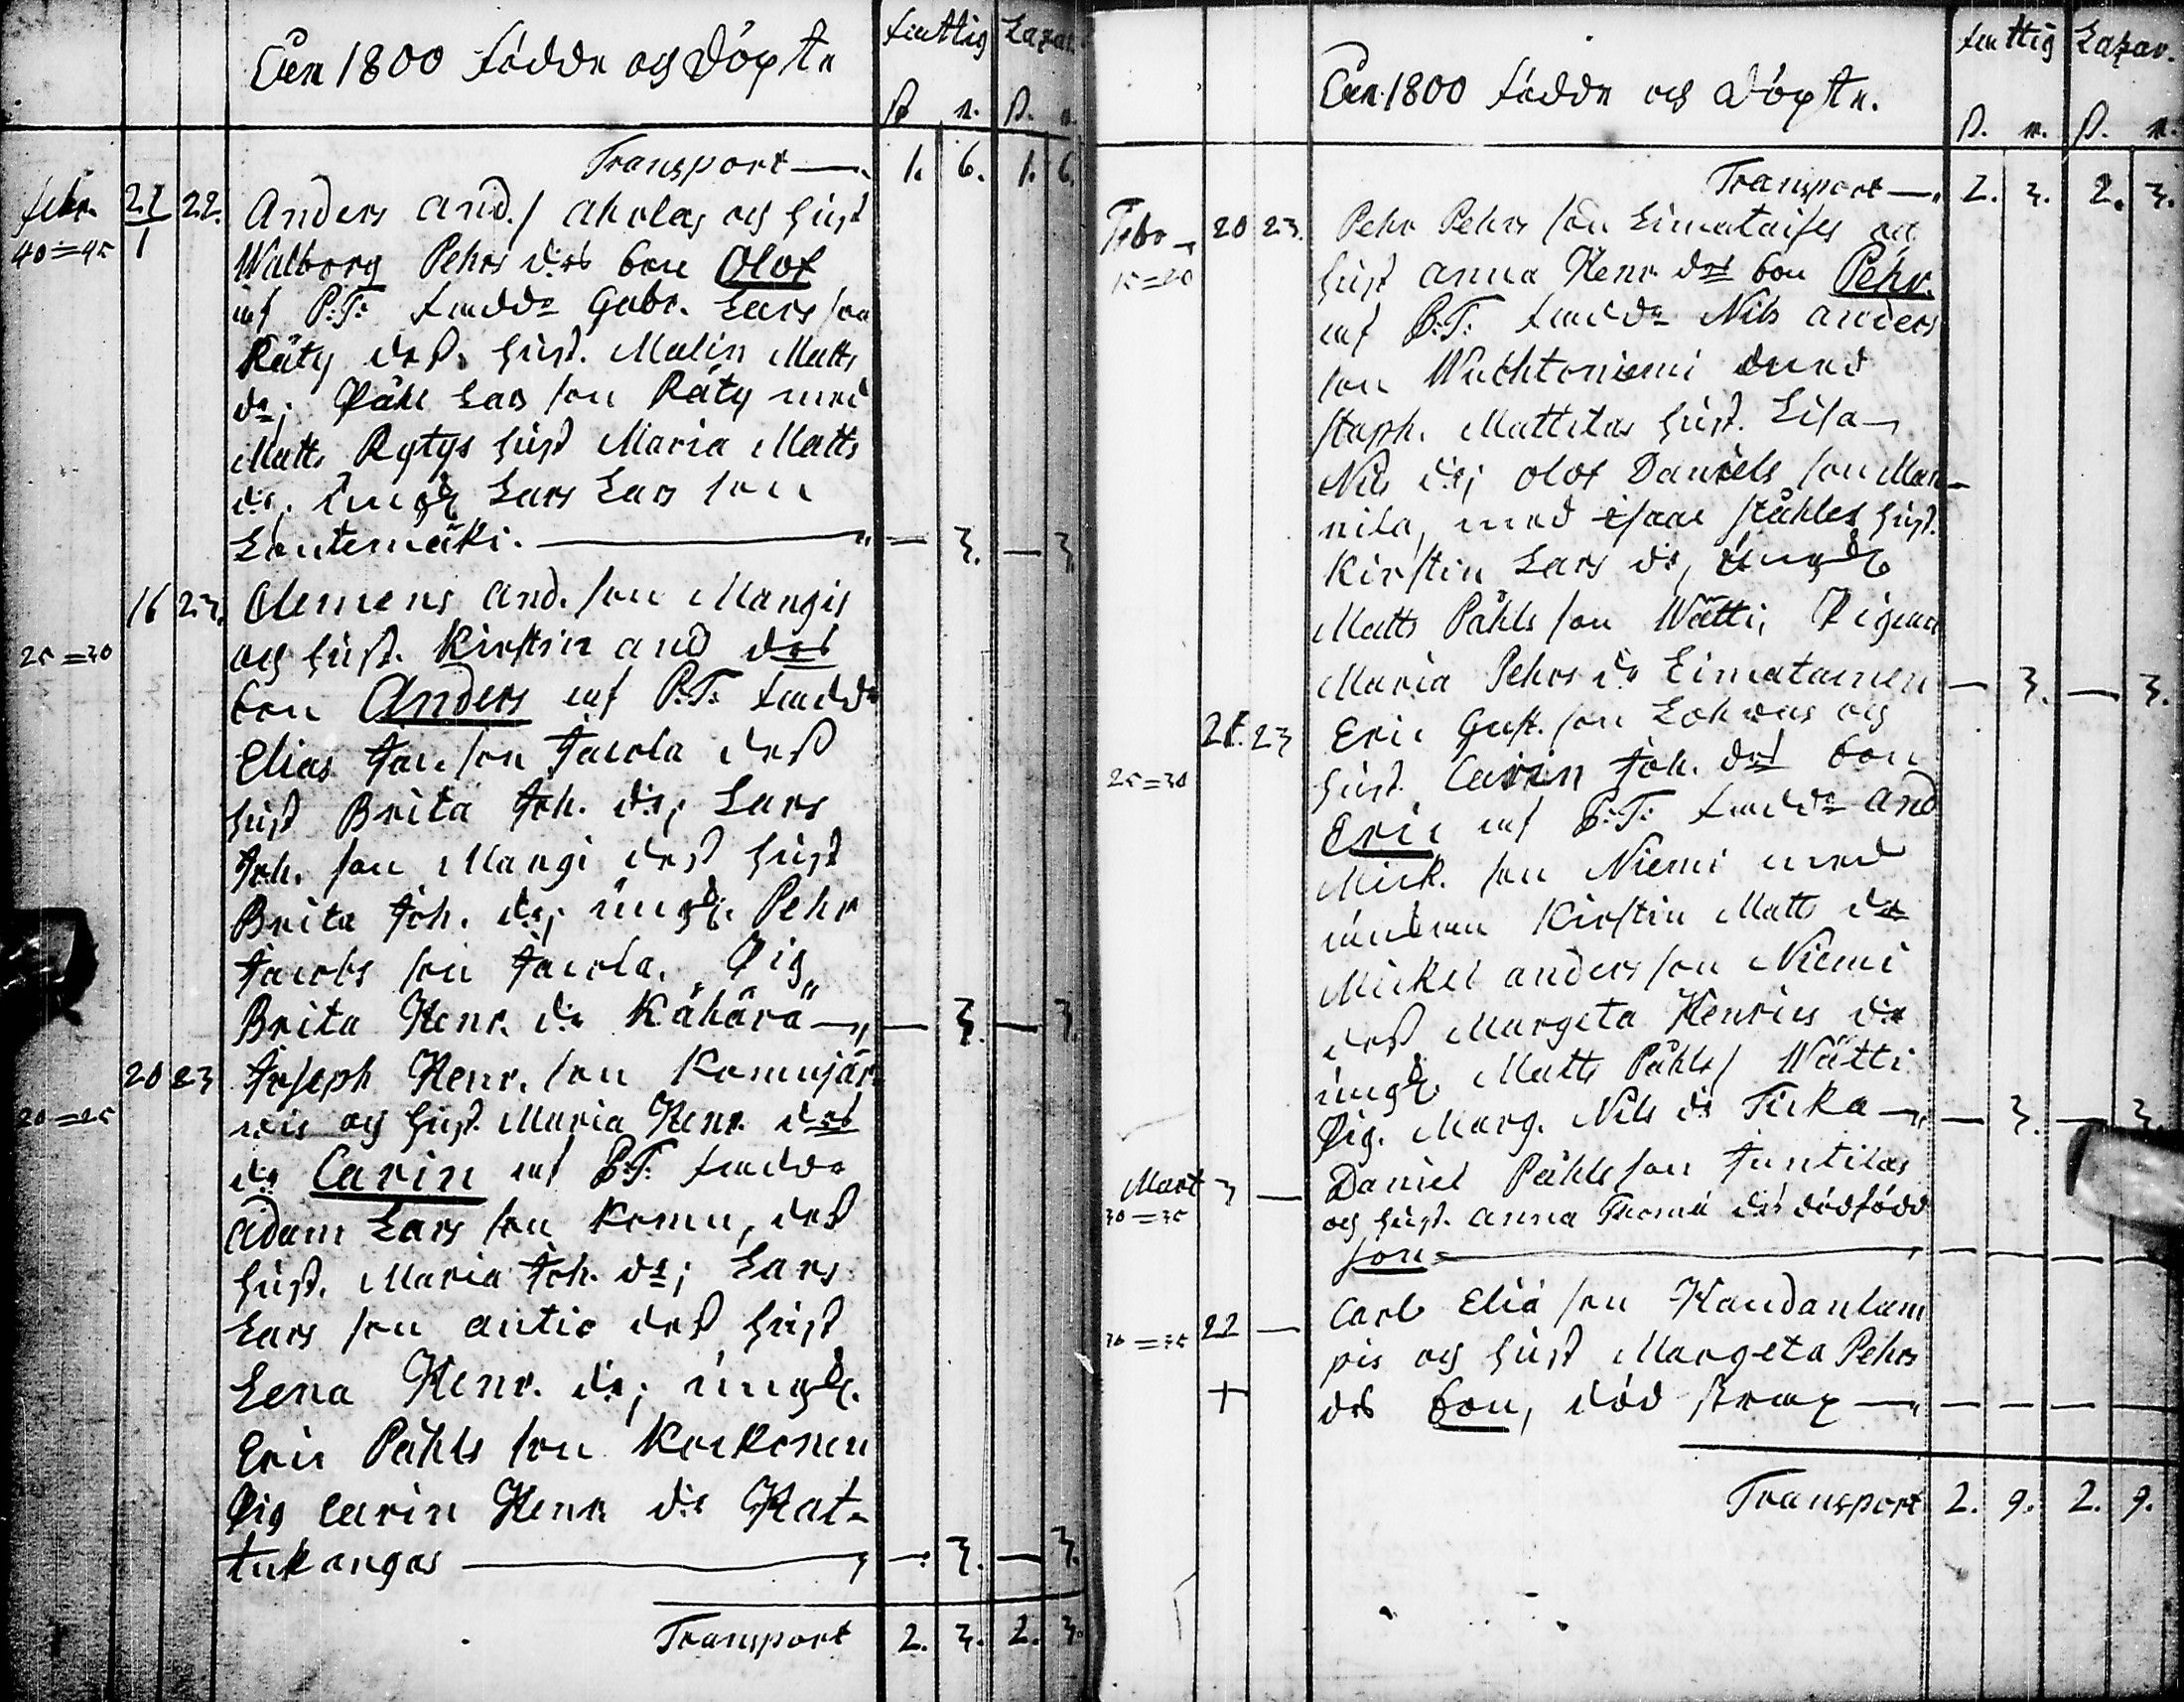 Åren 1800 födde och döpte
fattig Lazar.
ß r. ß. r.
Transport 1. 6. 1. 6.
febr. 21 22. Anders And./ Aholas och hust
40=45 1 Walborg Pehrs drs son Olof
af P.T. fadd. Gabr. Lars son
Räty dess hust. Malin Matts
dr; Påhl Lars son Räty med
Matts Rytys hust Maria Matts
dr, Lars Lars son
Lautemäki. — 3. — 3.
16 23. Clemens And. son Mangis
25=30 och hust. Kirstin And drs
son Anders af P.T. fadd.
Elias Jac. son Jacola dess
hust Brita Joh. dr; Lars
Joh. son Mangi dess hust
Brita Joh. dr; Pehr
Jacobs son Jacola, Pig
Brita Henr. dr Kähärä — 3. — 3.
20 23 Joseph Henr. son Komujär
20=25 wis och hust. Maria Henr. drs
dr Carin af P.T. fadd.
Adam Lars son Komu, dess
hust. Maria Joh. dr; Lars
Lars son Antio dess hust
Lena Henr. dr;
Eric Påhls son Korkonen
Pig Carin Henr dr Kat-
tukangas — 3. — 3.
Transport 2. 3. 2. 3.
Åren 1800 födde och döpte.
fattig Lazar.
ß. r. ß. r.
Transport 2. 3. 2. 3.
Febr 20 23. Pehr Pehrs son Limataises och
15=20 hust Anna Henr drs son Pehr.
af P.T. fadd. Nils Anders
son Wachtoniemi med
Staph. Mattilas hust. Lisa
Nils dr; Olof Daniels son Man-
nila, med Isaac Ståhles hust.
Kirstin Lars dr,
Matts Påhls son Wätti; Pigan
Maria Pehrs dr Limatainen — 3. — 3.
21. 23 Eric Gust. son Lohwas och
25=30 hust Carin Joh. drs son
Eric af P.T. fadd. And
Mick. son Niemi med
Kirstin Matts dr
Mickel Anders son Niemi
dess Margeta Henrics dr
Matts Påhls/ Wätti
Pig. Marg. Nils dr Ticka — 3. — 3.
Mart 3 — Daniel Påhls son Juntilas
30=35 och hust. Anna Thomä drs dödfödd
son — — — —
30=35 22 — Carl Eliä son Kandanlam
pis och hust Margeta Pehrs
+ drs son, död strax — — — —
Transport 2. 9. 2. 9.